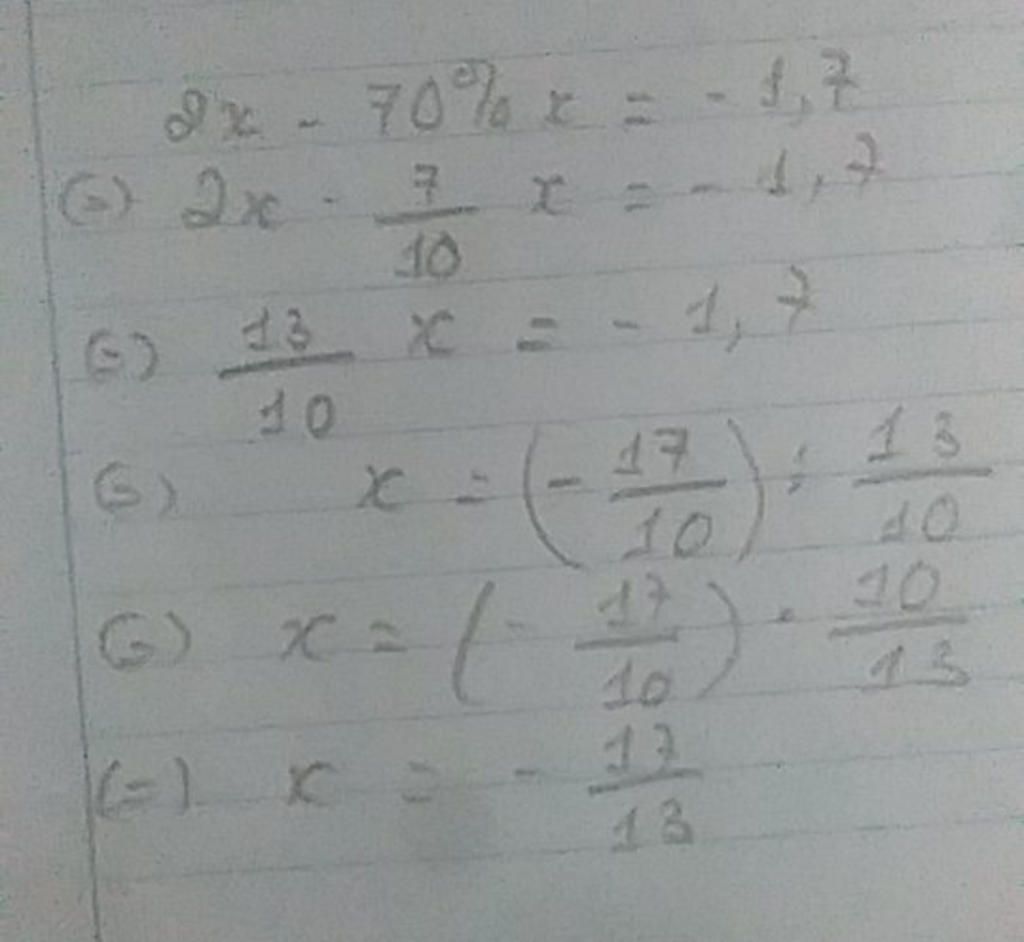 2x - 70% x = - 1,7
(=) 2x - 7/10 x = - 1,7
(=) 13/10 x = - 1,7
(=) x = (- 17/10) : 13/10
(=) x = (- 17/10) . 10/13
(=) x = - 17/13